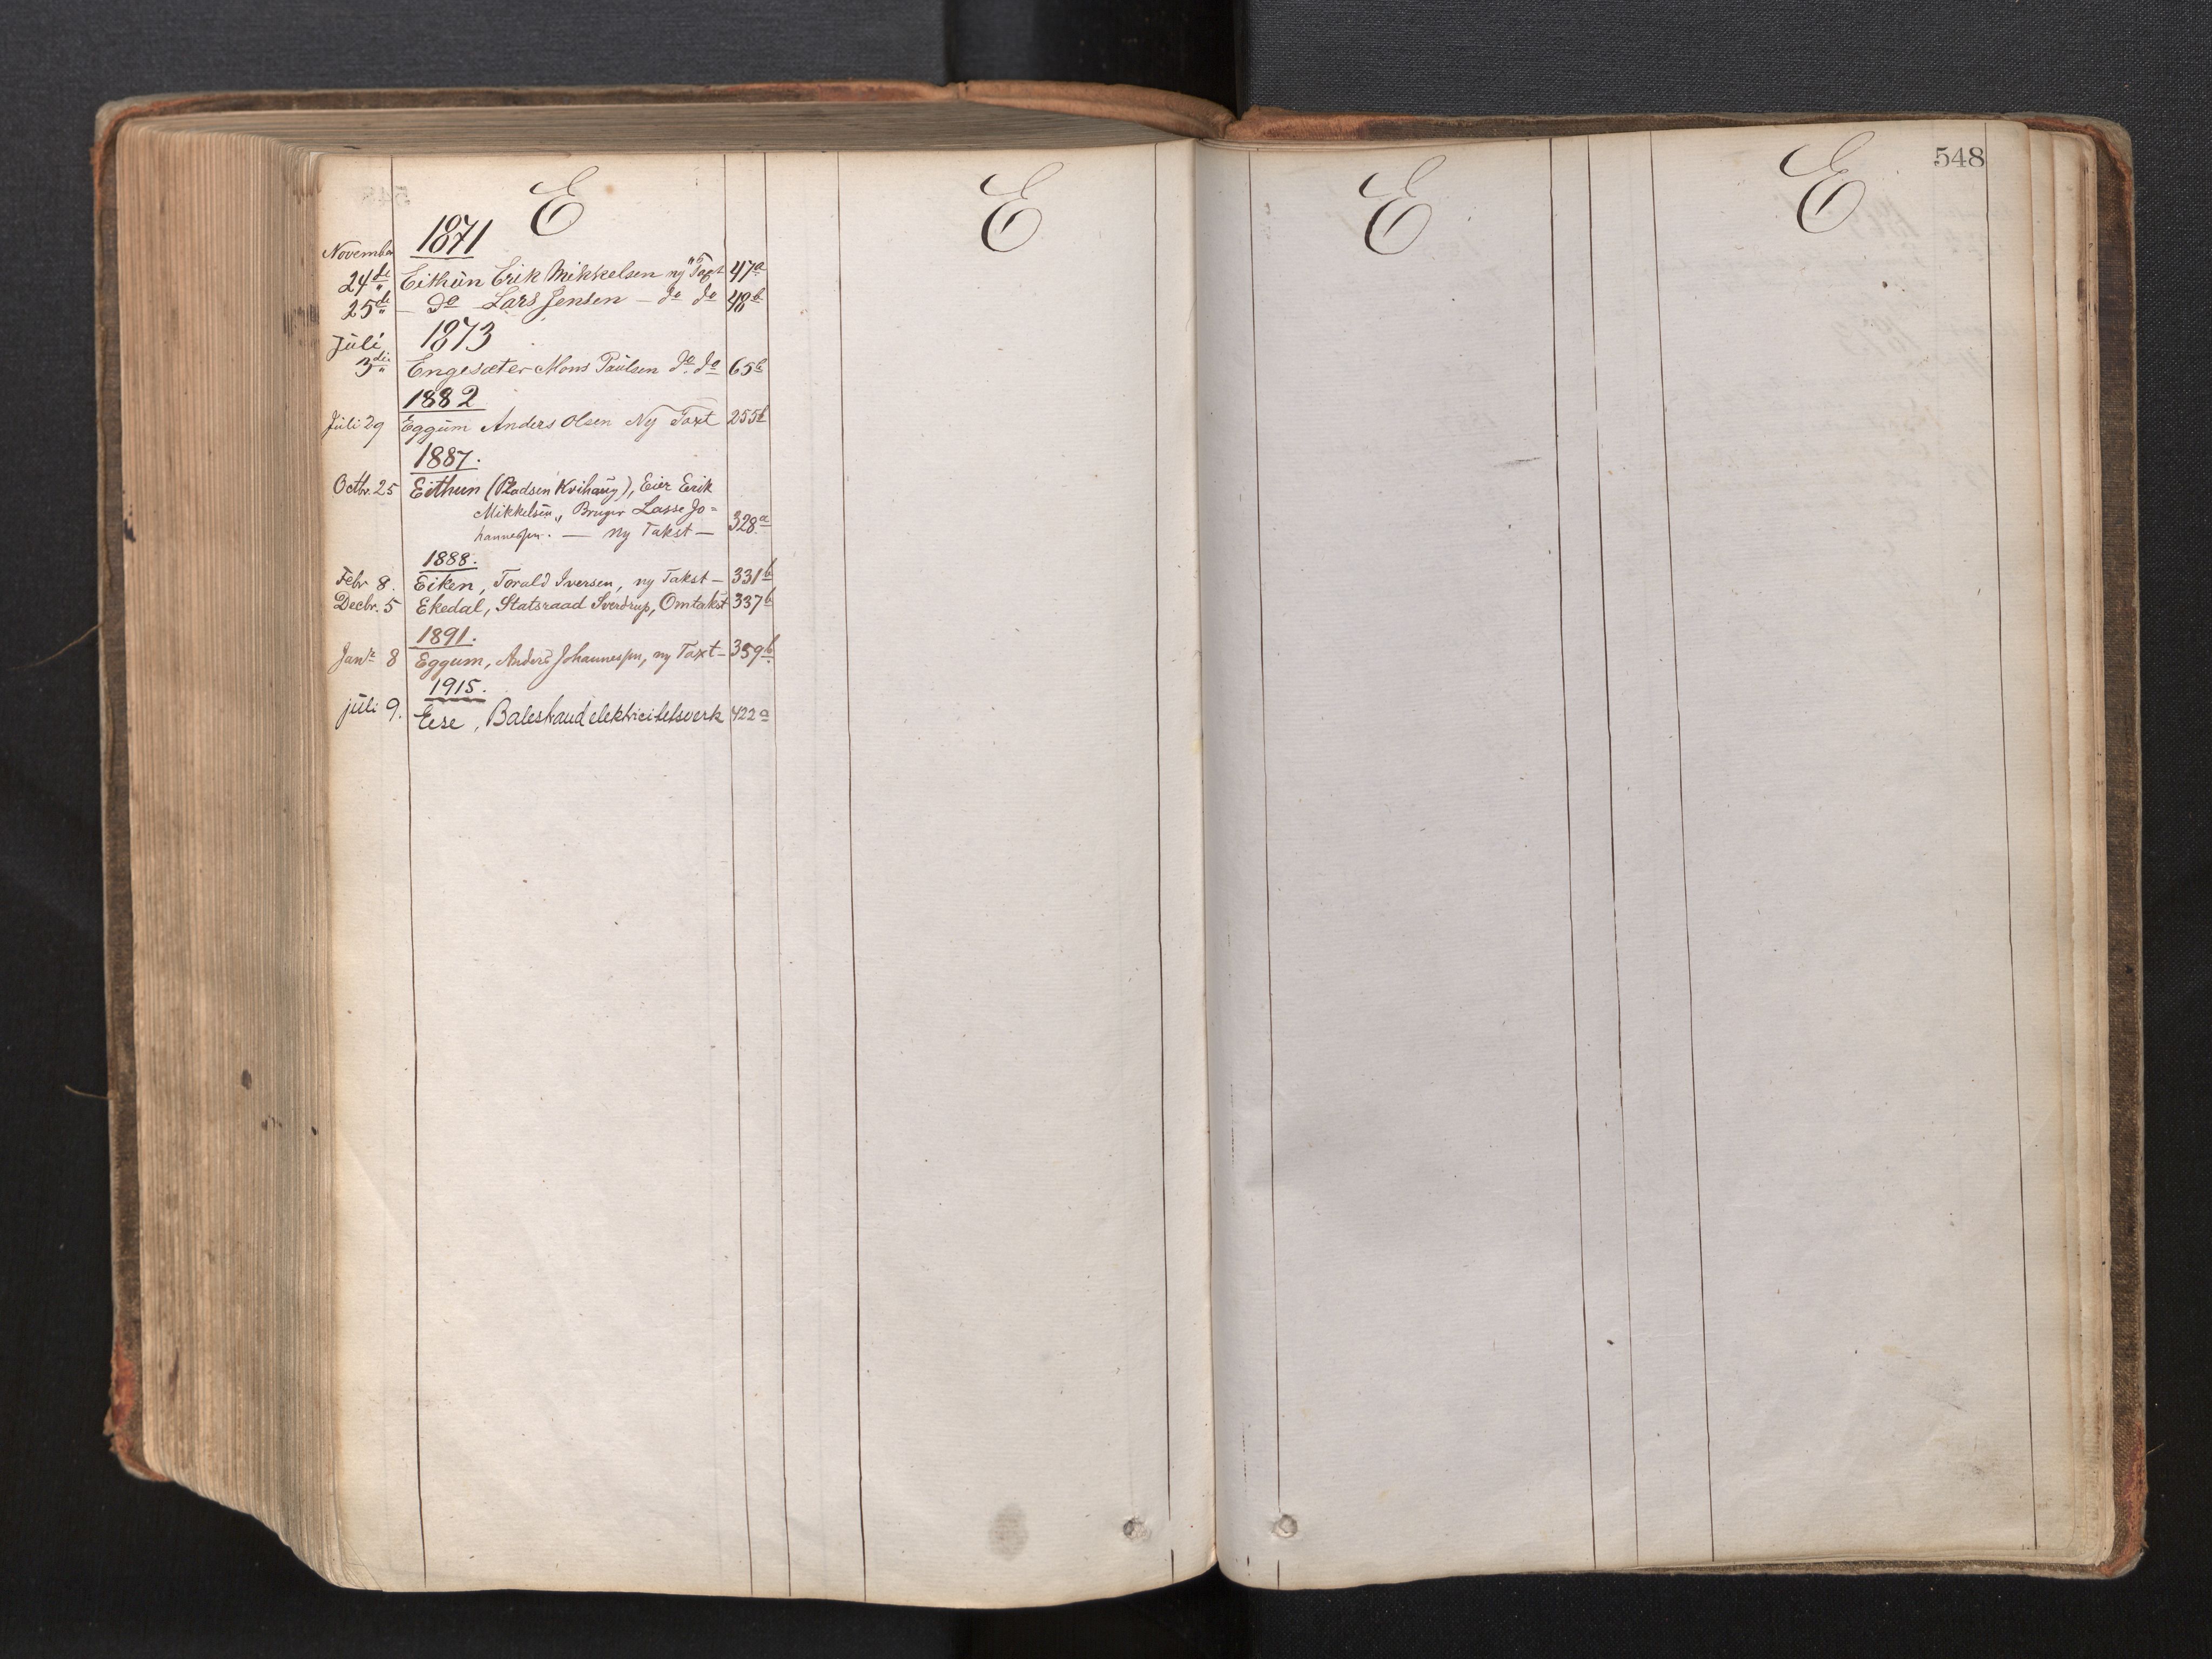 E
1871
November
24de Eithun Erik Mikkelsen ny Taxt 47a
25de — do Lars Jensen — do do 48b
Juli 1873
3die Engesæter Mons Paulsen do. do 65b
1882
Juli 29 Eggum Anders Olsen Ny Taxt 255b
1887.
Octbr. 25 Eithun (Pladsen Kvihaug), Eier Erik
Mikkelsen, Bruger Lasse Jo=
hannessen. — ny Takst — 328a
1888.
Febr 8. Eiken, Torald Iversen, ny Takst — 331b
Decbr. 5 Ekedal, Statsraad Sverdrup, Omtakst 337b
1891.
Janr 8 Eggum, Anders Johannessen, ny Taxt — 359b
1915.
juli 9. Ese, Balestrand elektricitetsverk 422a
E
E
E
548